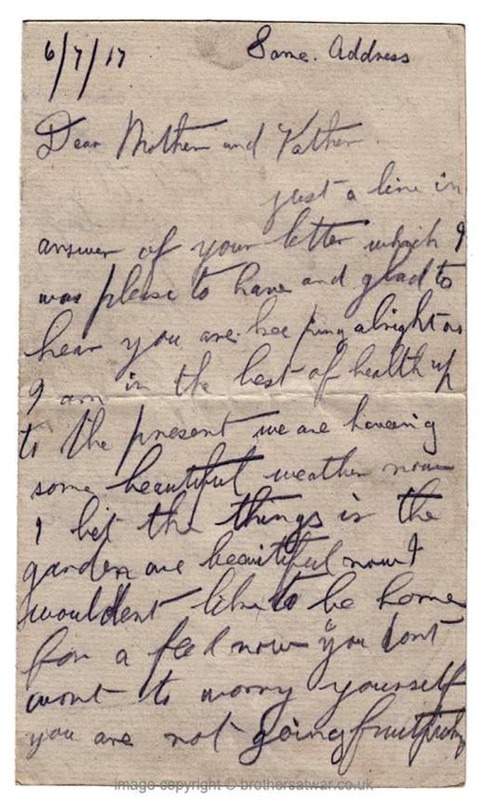 6/7/17 Same. Address
Dear Mother and Father.
just a line in
answer of your letter which I
was please to have and glad to
hear you are keeping alright as
I am in the best of health up
to the present we are haveing
some beautiful weather now
I bet the things in the
garden are beautiful now I
wouldent like to be home
for a feed now you dont
wont to worry yourself
you are not going fruitpicking
image copyright © brothersatwar.co.uk